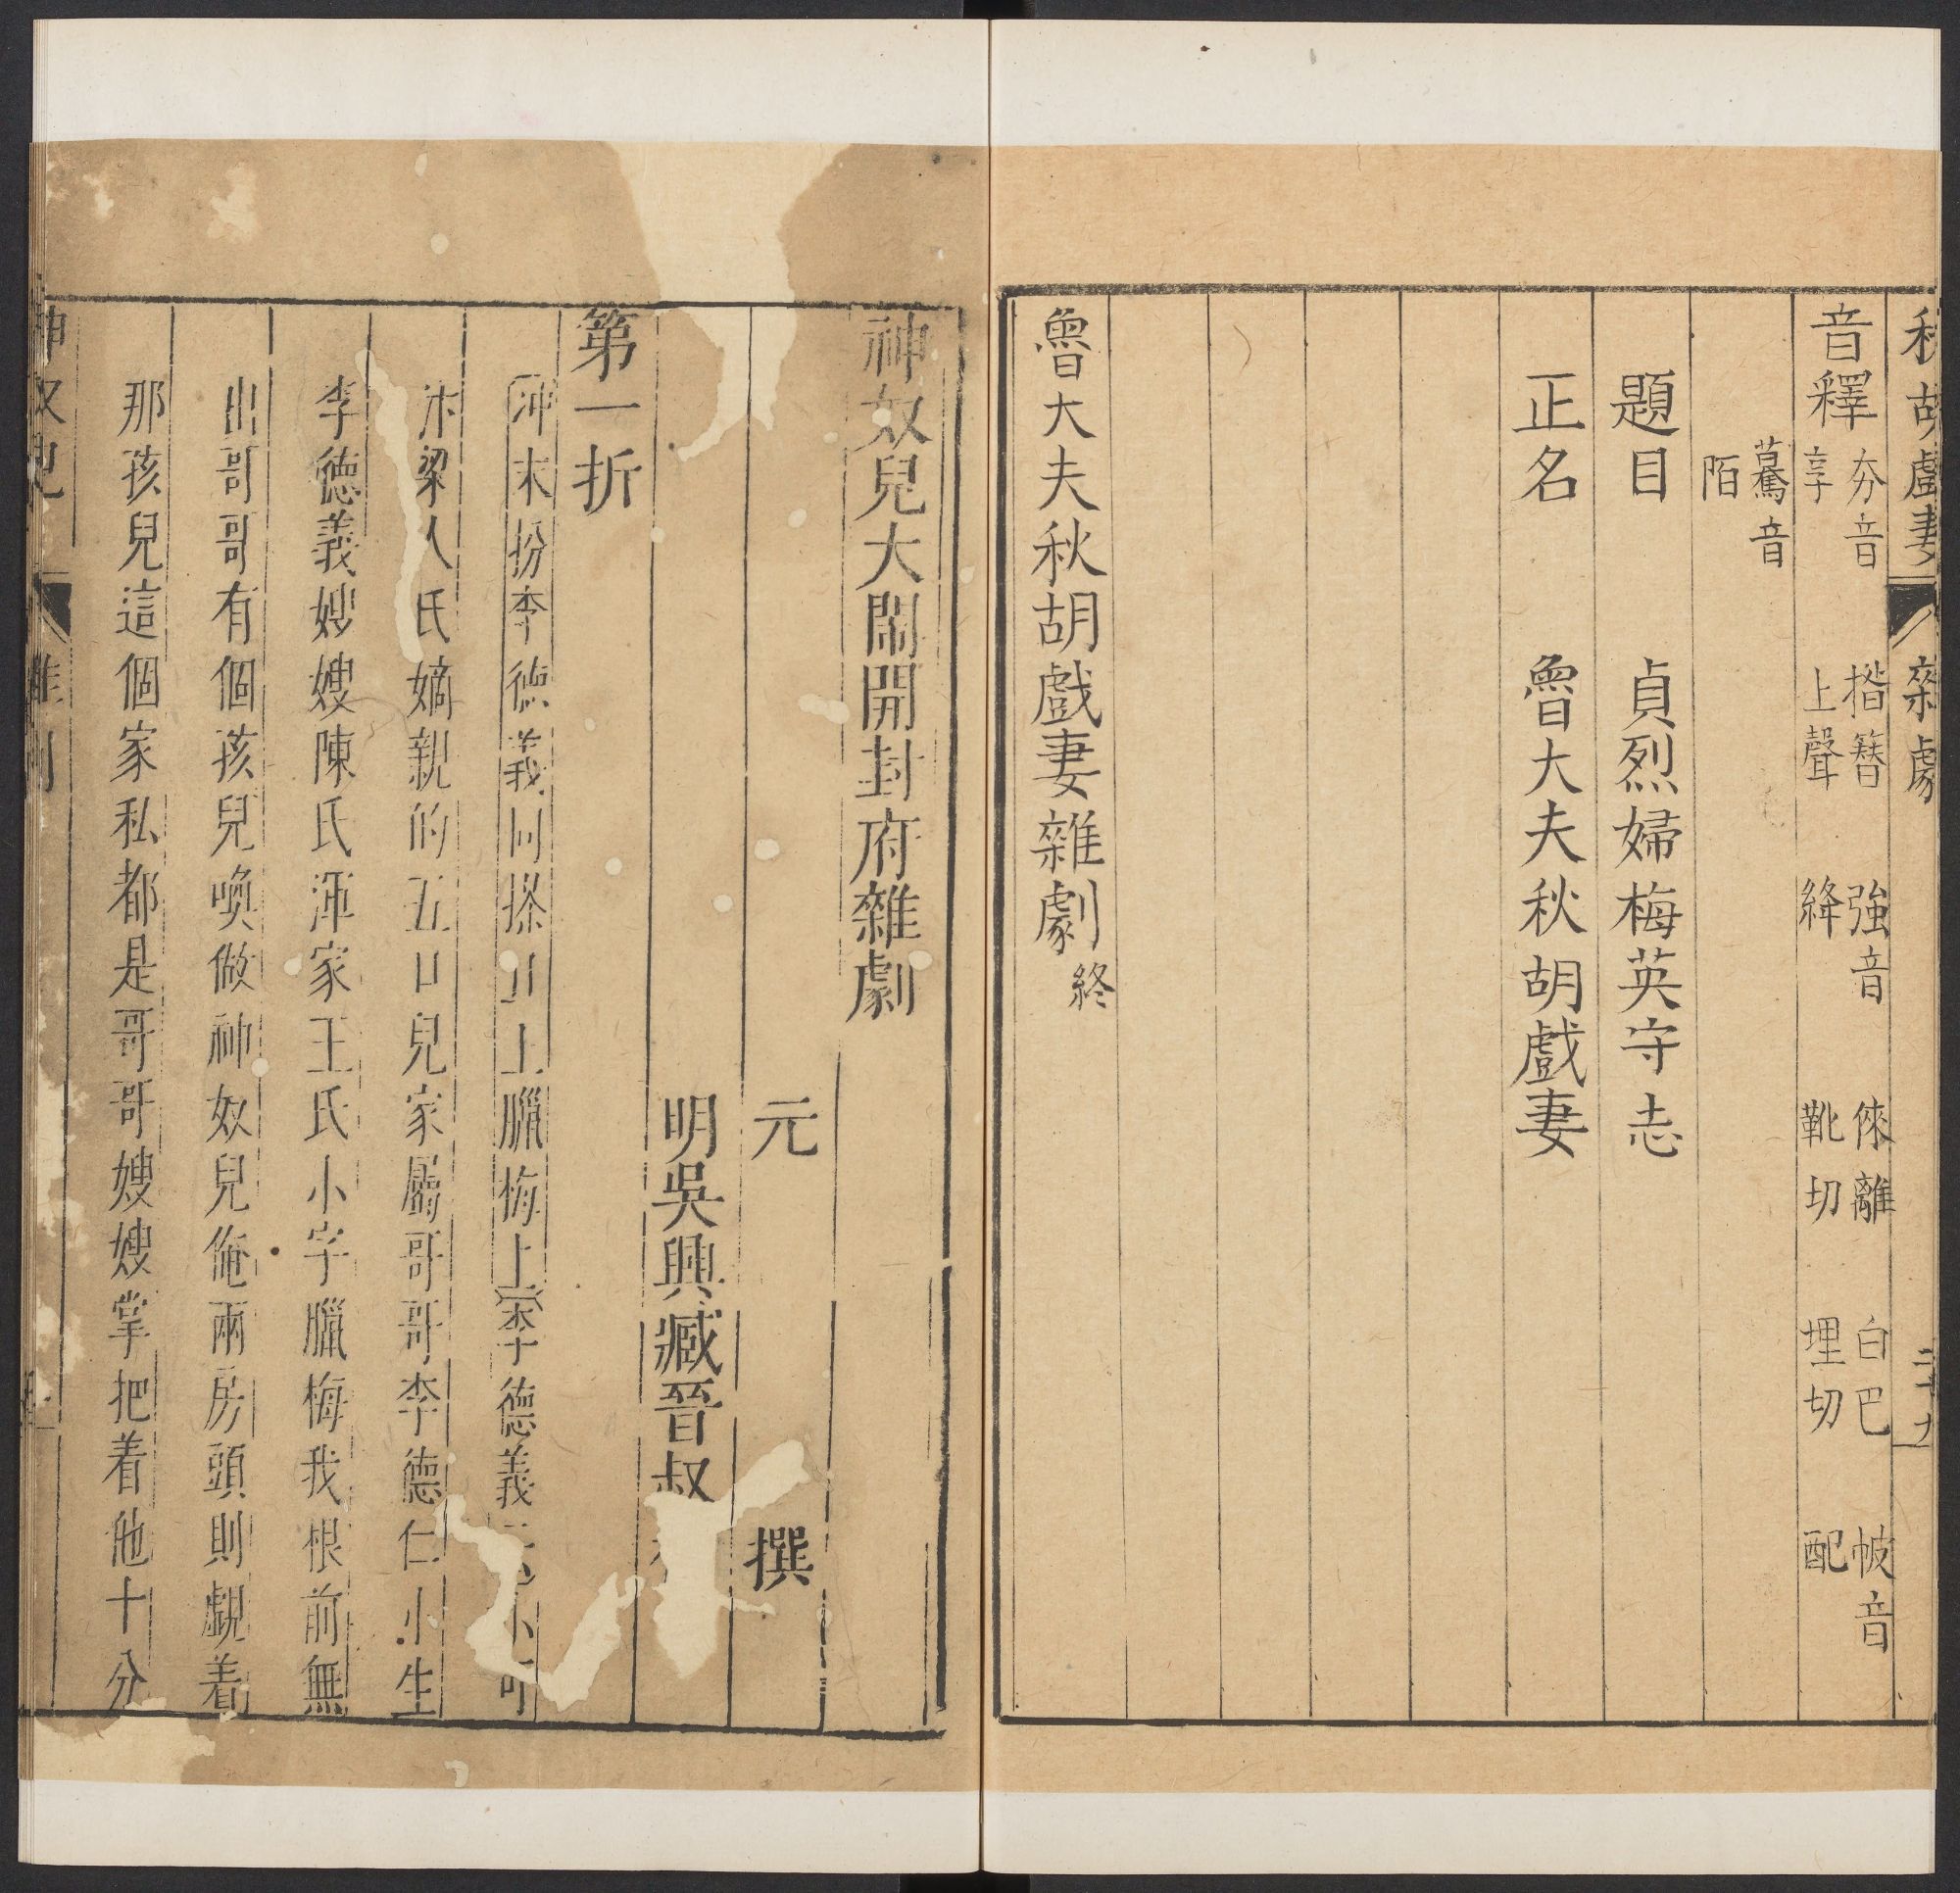 秋胡戲妻 雜劇 二十九
音釋 夯音享 揝簪上聲 強音絳 倈離靴切 白巴埋切 帔音配
驀音陌
題目 貞烈婦梅英守志
正名 魯大夫秋胡戲妻
魯大夫秋胡戲妻雜劇終
神奴兒大鬧開封府雜劇
元 撰
明吳興臧晉叔
第一折
冲末扮李德義同搽旦上臘梅上李德義云小可
汴梁人氏嫡親的五口兒家屬哥哥李德仁小生
李德義嫂嫂陳氏渾家王氏小字臘梅我根前無
出哥哥有個孩兒喚做神奴兒俺兩房頭則覷着
那孩兒這個家私都是哥哥嫂嫂掌把着他十分
神奴兒 雜劇